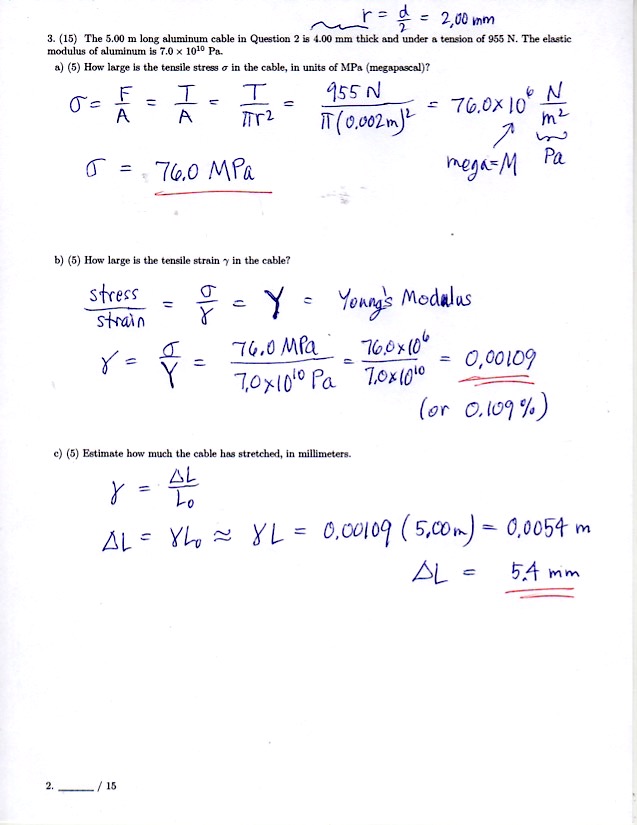 r = d/2 = 2,00 mm
3. (15) The 5.00 m long aluminum cable in Question 2 is 4.00 mm thick and under a tension of 955 N. The elastic
modulus of aluminum is 7.0 × 10¹⁰ Pa.
a) (5) How large is the tensile stress σ in the cable, in units of MPa (megapascal)?
σ = F/A = T/A = T/πr² = 955 N/π(0.002m)² = 76.0×10⁶ N/m²
mega=M Pa
σ = 76.0 MPa
b) (5) How large is the tensile strain γ in the cable?
stress/strain = σ/γ = Y = Young's Modulus
γ = σ/Y = 76.0 MPa/7.0×10¹⁰ Pa = 76.0×10⁶/7.0×10¹⁰ = 0,00109
(or 0.109%)
c) (5) Estimate how much the cable has stretched, in millimeters.
γ = ΔL/L₀
ΔL = γL₀ ≈ γL = 0,00109 (5,00m) = 0,0054 m
ΔL = 5.4 mm
2. ____ / 15